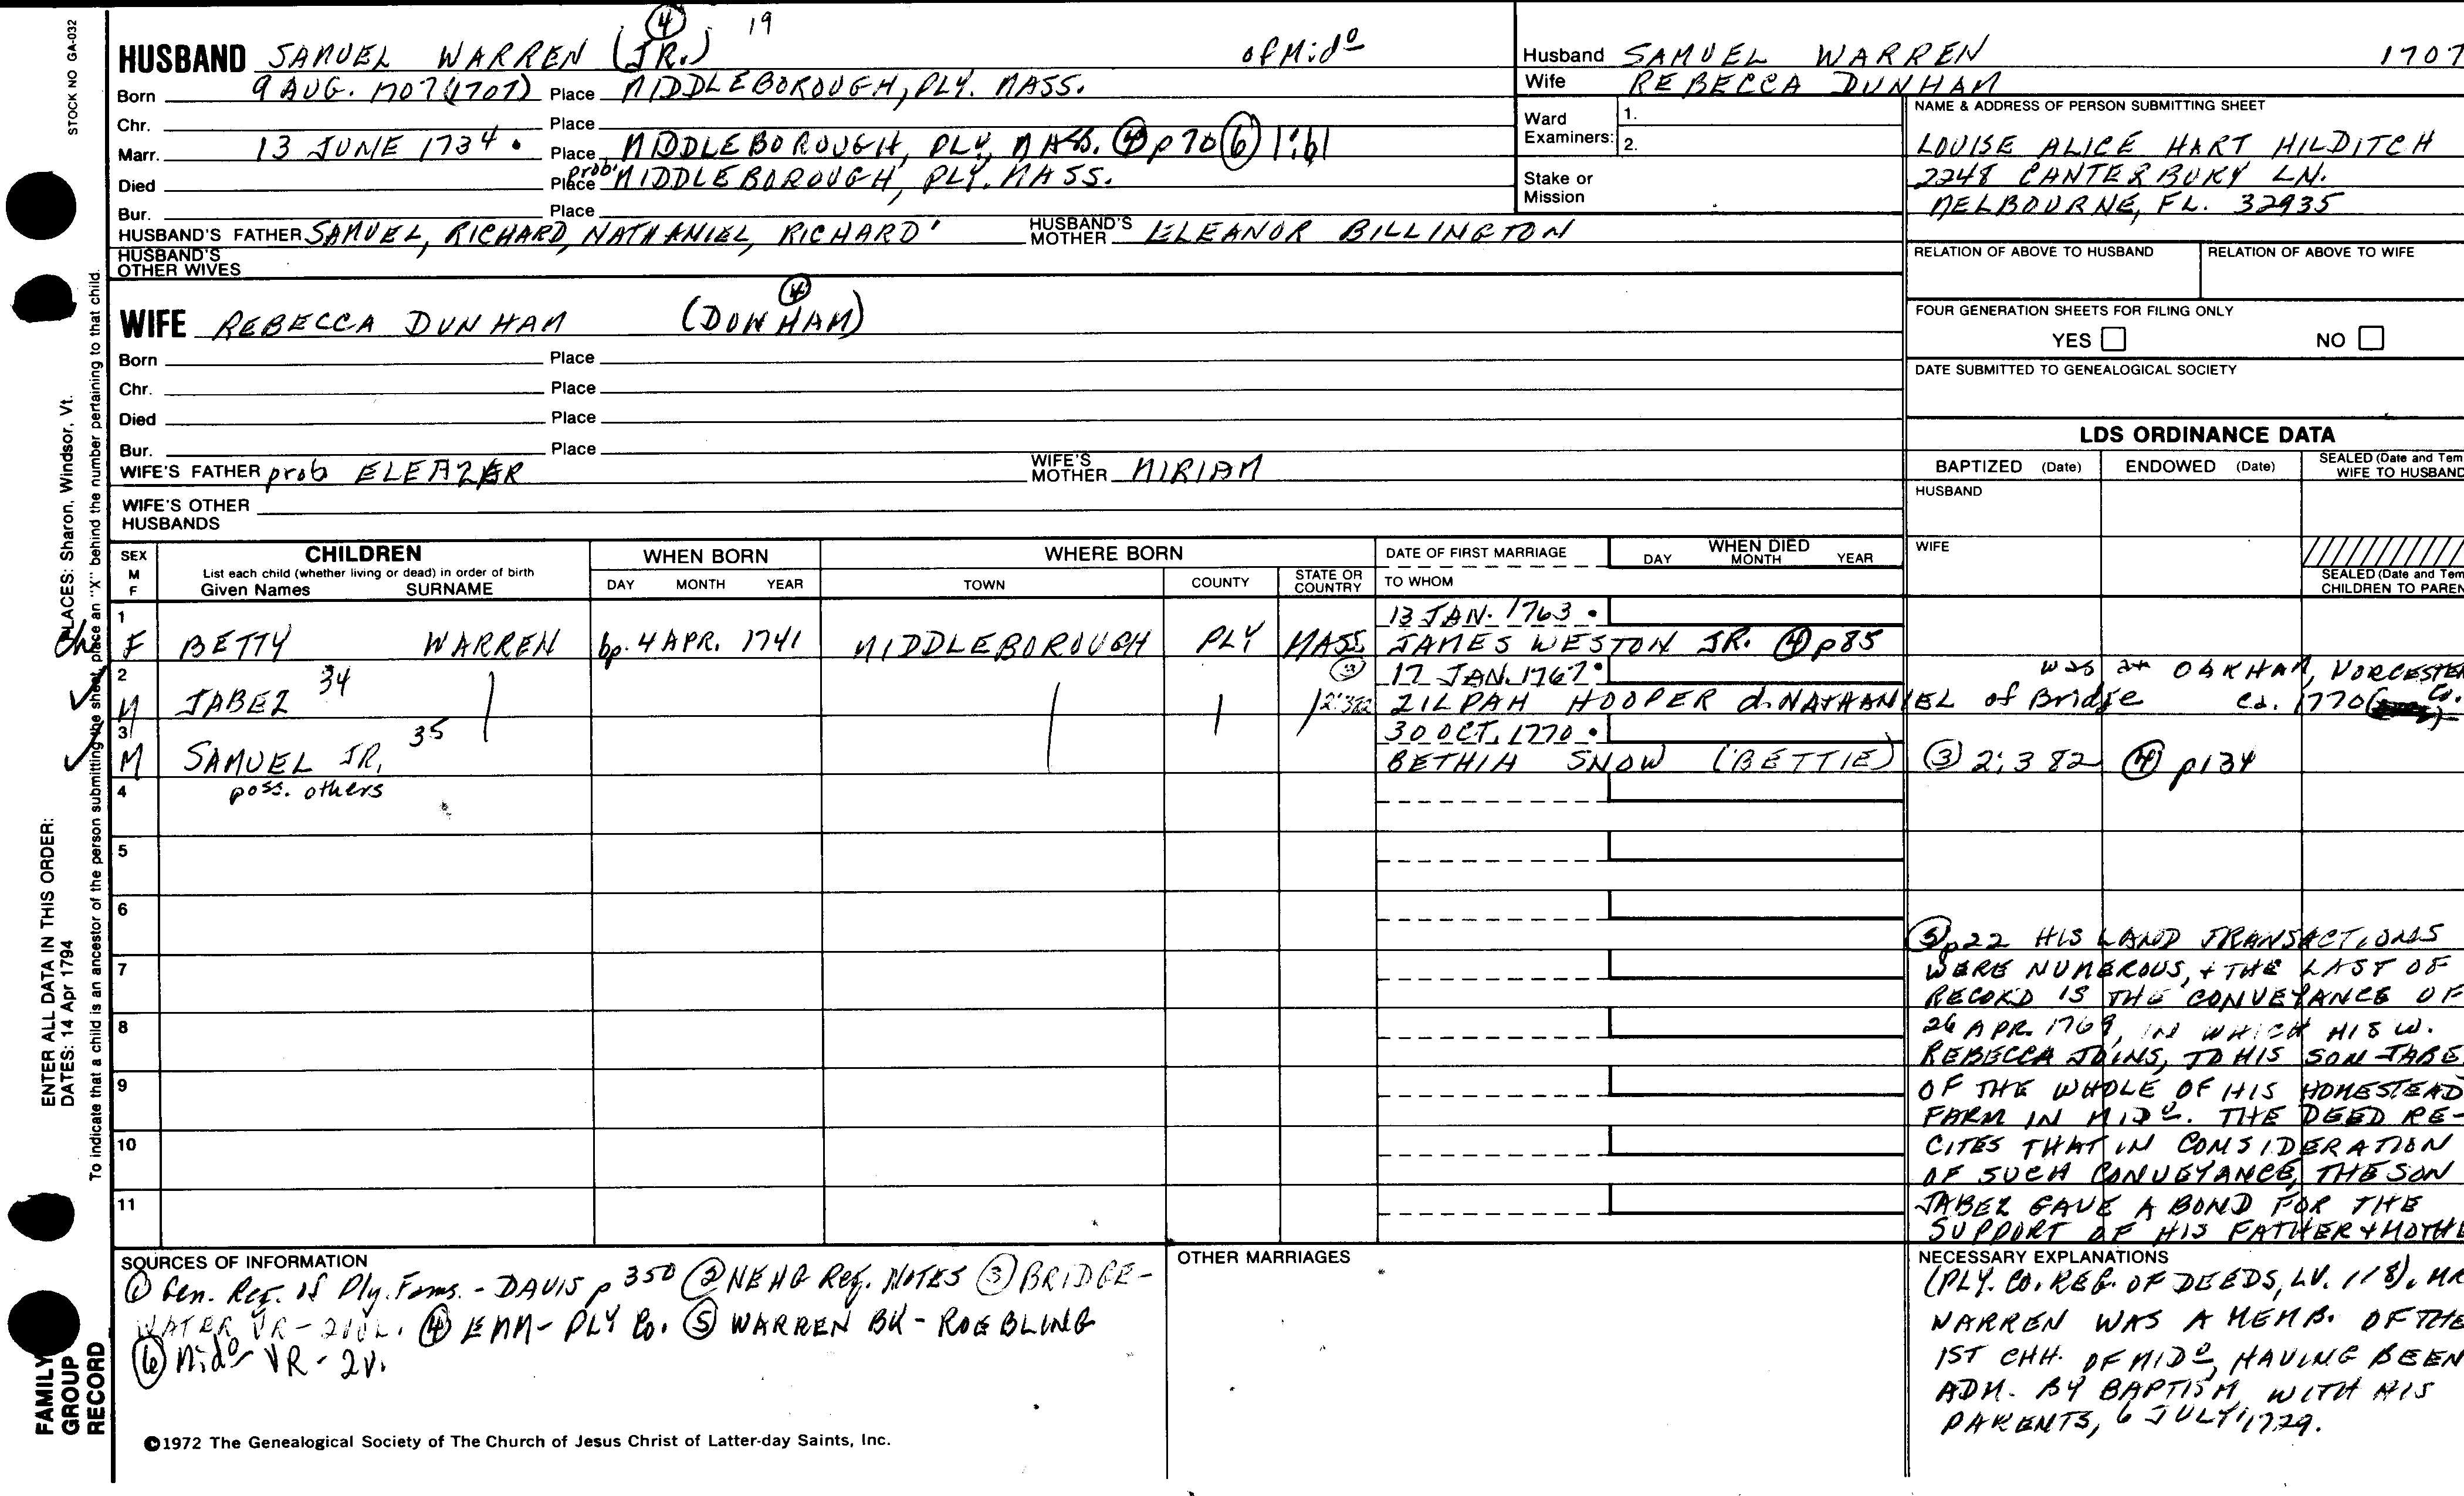 STOCK NO GA-032
④ 19
HUSBAND SAMUEL WARREN (JR.) of Mido
Born 9 AUG. 1707 (1707) Place MIDDLEBOROUGH, PLY. MASS.
Chr. Place
Marr. 13 JUNE 1734 • Place MIDDLEBOROUGH, PLY, MASS. ④ p 70 ⑥ 1:61
Died Place prob. MIDDLEBOROUGH, PLY. MASS.
Bur. Place
HUSBAND'S FATHER SAMUEL, RICHARD, NATHANIEL, RICHARD' HUSBAND'S MOTHER ELEANOR BILLINGTON
HUSBAND'S OTHER WIVES
④
WIFE REBECCA DUNHAM (DONHAM)
Born Place
Chr. Place
Died Place
Bur. Place
WIFE'S FATHER prob ELEAZER WIFE'S MOTHER MIRIAM
WIFE'S OTHER HUSBANDS
Husband SAMUEL WARREN 1707
Wife REBECCA DUNHAM
Ward Examiners: 1. 2.
Stake or Mission
NAME & ADDRESS OF PERSON SUBMITTING SHEET
LOUISE ALICE HART HILDITCH
2248 CANTERBURY LN.
MELBOURNE, FL. 32935
RELATION OF ABOVE TO HUSBAND RELATION OF ABOVE TO WIFE
FOUR GENERATION SHEETS FOR FILING ONLY
YES NO
DATE SUBMITTED TO GENEALOGICAL SOCIETY
LDS ORDINANCE DATA
BAPTIZED (Date) ENDOWED (Date) SEALED (Date and Tem WIFE TO HUSBAND
HUSBAND
WIFE
SEALED (Date and Tem CHILDREN TO PAREN
SEX M F CHILDREN List each child (whether living or dead) in order of birth Given Names SURNAME
WHEN BORN DAY MONTH YEAR
WHERE BORN TOWN COUNTY STATE OR COUNTRY
DATE OF FIRST MARRIAGE TO WHOM
WHEN DIED DAY MONTH YEAR
1 13 JAN. 1763 •
F BETTY WARREN bp. 4 APR. 1741 MIDDLEBOROUGH PLY MASS. JAMES WESTON JR. ④ p85
2 34 ③ 17 JAN. 1767 • was at OAKHAM, WORCESTER Co.
M JABEZ 2:382 ZILPAH HOOPER d. NATHANIEL of Bridge ca. 1770
3 35 30 OCT. 1770 •
M SAMUEL JR. BETHIA SNOW (BETTIE) ③ 2:382 ④ p134
4 poss. others
5
6
7
8
9
10
11
⑤ p22 HIS LAND TRANSACTIONS
WERE NUMEROUS, + THE LAST OF
RECORD IS THE CONVEYANCE OF
26 APR. 1769, IN WHICH HIS W.
REBECCA JOINS, TO HIS SON JABE
OF THE WHOLE OF HIS HOMESTEAD
FARM IN MIDo. THE DEED RE-
CITES THAT IN CONSIDERATION
OF SUCH CONVEYANCE, THE SON
JABEZ GAVE A BOND FOR THE
SUPPORT OF HIS FATHER + MOTHE
NECESSARY EXPLANATIONS
(PLY. CO. REG. OF DEEDS, LV. 118). MR
WARREN WAS A MEMB. OF THE
1ST CHH. OF MIDo, HAVING BEEN
ADM. BY BAPTISM WITH HIS
PARENTS, 6 JULY, 1729.
SOURCES OF INFORMATION
① Gen. Reg. of Ply. Fams. - DAVIS p 350 ② NEHG Reg. NOTES ③ BRIDGE-
WATER VR - 2VOL. ④ EMM - PLY Co. ⑤ WARREN BK - ROEBLING
⑥ Mido VR - 2V.
OTHER MARRIAGES
©1972 The Genealogical Society of The Church of Jesus Christ of Latter-day Saints, Inc.
ENTER ALL DATA IN THIS ORDER:
DATES: 14 Apr 1794
PLACES: Sharon, Windsor, Vt.
To indicate that a child is an ancestor of the person submitting the sheet, place an "X" behind the number pertaining to that child.
FAMILY
GROUP
RECORD